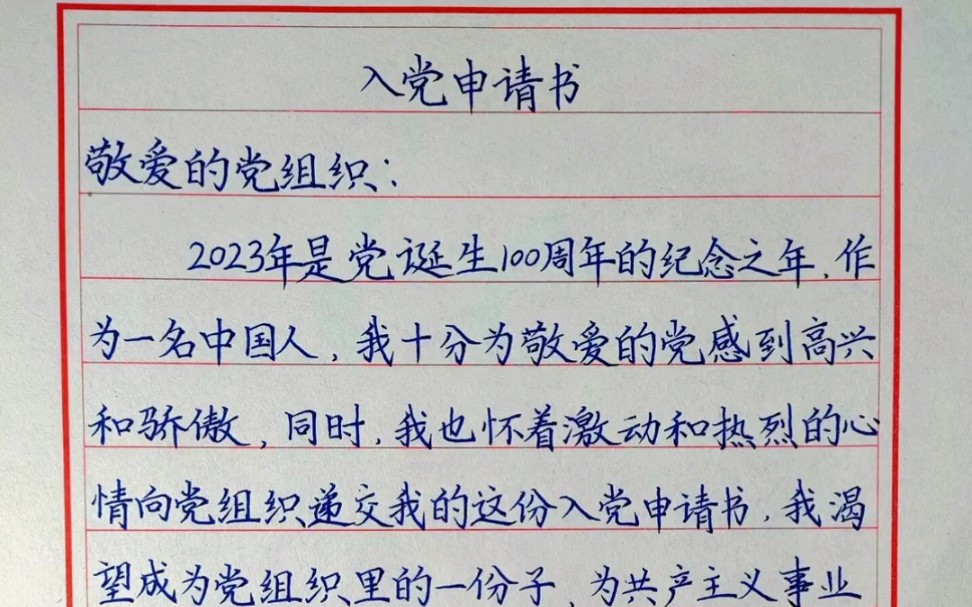 入党申请书
敬爱的党组织：
2023年是党诞生100周年的纪念之年，作
为一名中国人，我十分为敬爱的党感到高兴
和骄傲，同时，我也怀着激动和热烈的心
情向党组织递交我的这份入党申请书，我渴
望成为党组织里的一份子，为共产主义事业